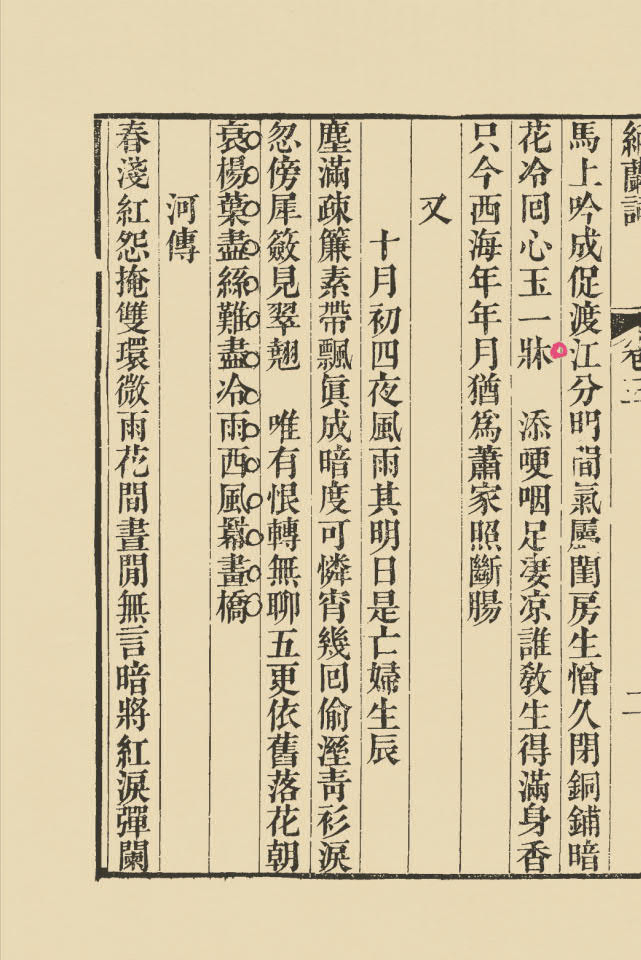 納蘭詞 卷三 二
馬上吟成促渡江分明閒氣屬閨房生憎久閉銅鋪暗
花冷囘心玉一牀 添哽咽足淒凉誰敎生得滿身香
只今西海年年月猶爲蕭家照斷腸
又
十月初四夜風雨其明日是亡婦生辰
塵滿疎簾素帶飄眞成暗度可憐宵幾囘偷溼靑衫淚
忽傍犀籢見翠翹 唯有恨轉無聊五更依舊落花朝
衰楊葉盡絲難盡冷雨西風羃畫橋
河傳
春淺紅怨掩雙環微雨花間晝閒無言暗將紅淚彈闌